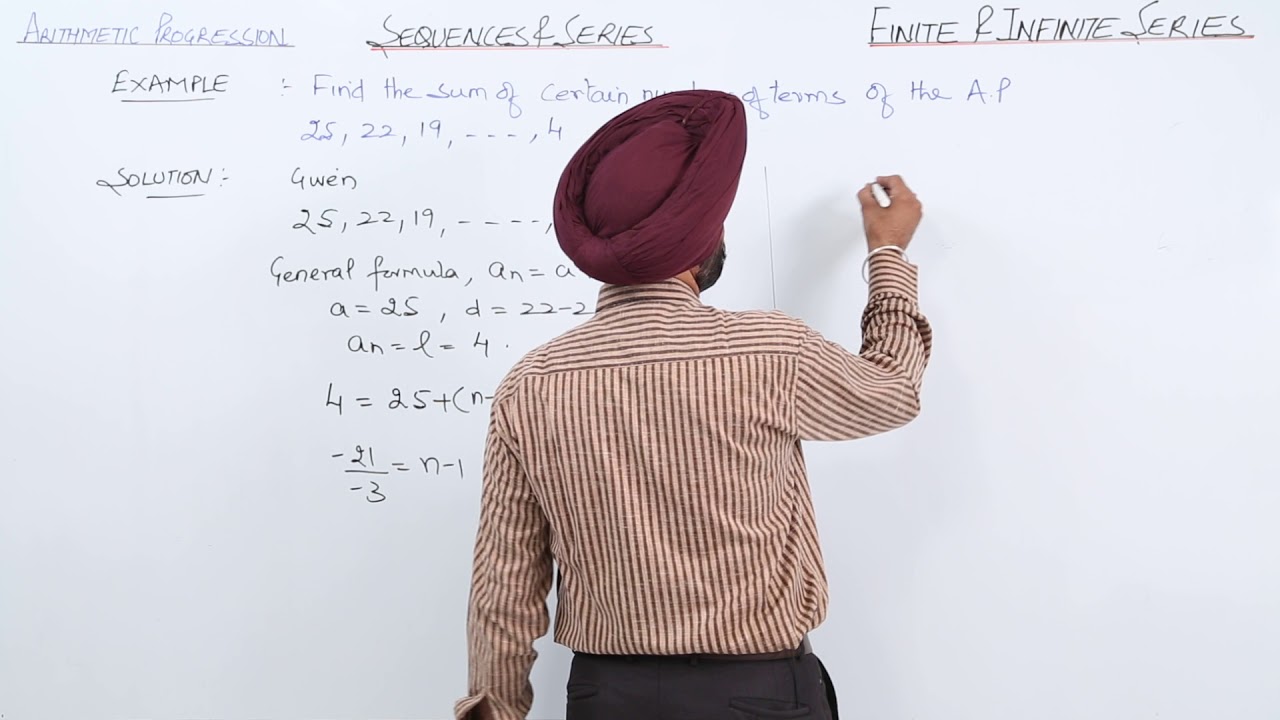 ARITHMETIC PROGRESSION
SEQUENCES & SERIES
FINITE & INFINITE SERIES
EXAMPLE :- Find the sum of certain of terms of the A.P
25, 22, 19, ----, 4
SOLUTION:- Given
25, 22, 19, -----,
General formula, an = a
a = 25 , d = 22-2
an = l = 4 .
4 = 25+(n-
-21/-3 = n-1